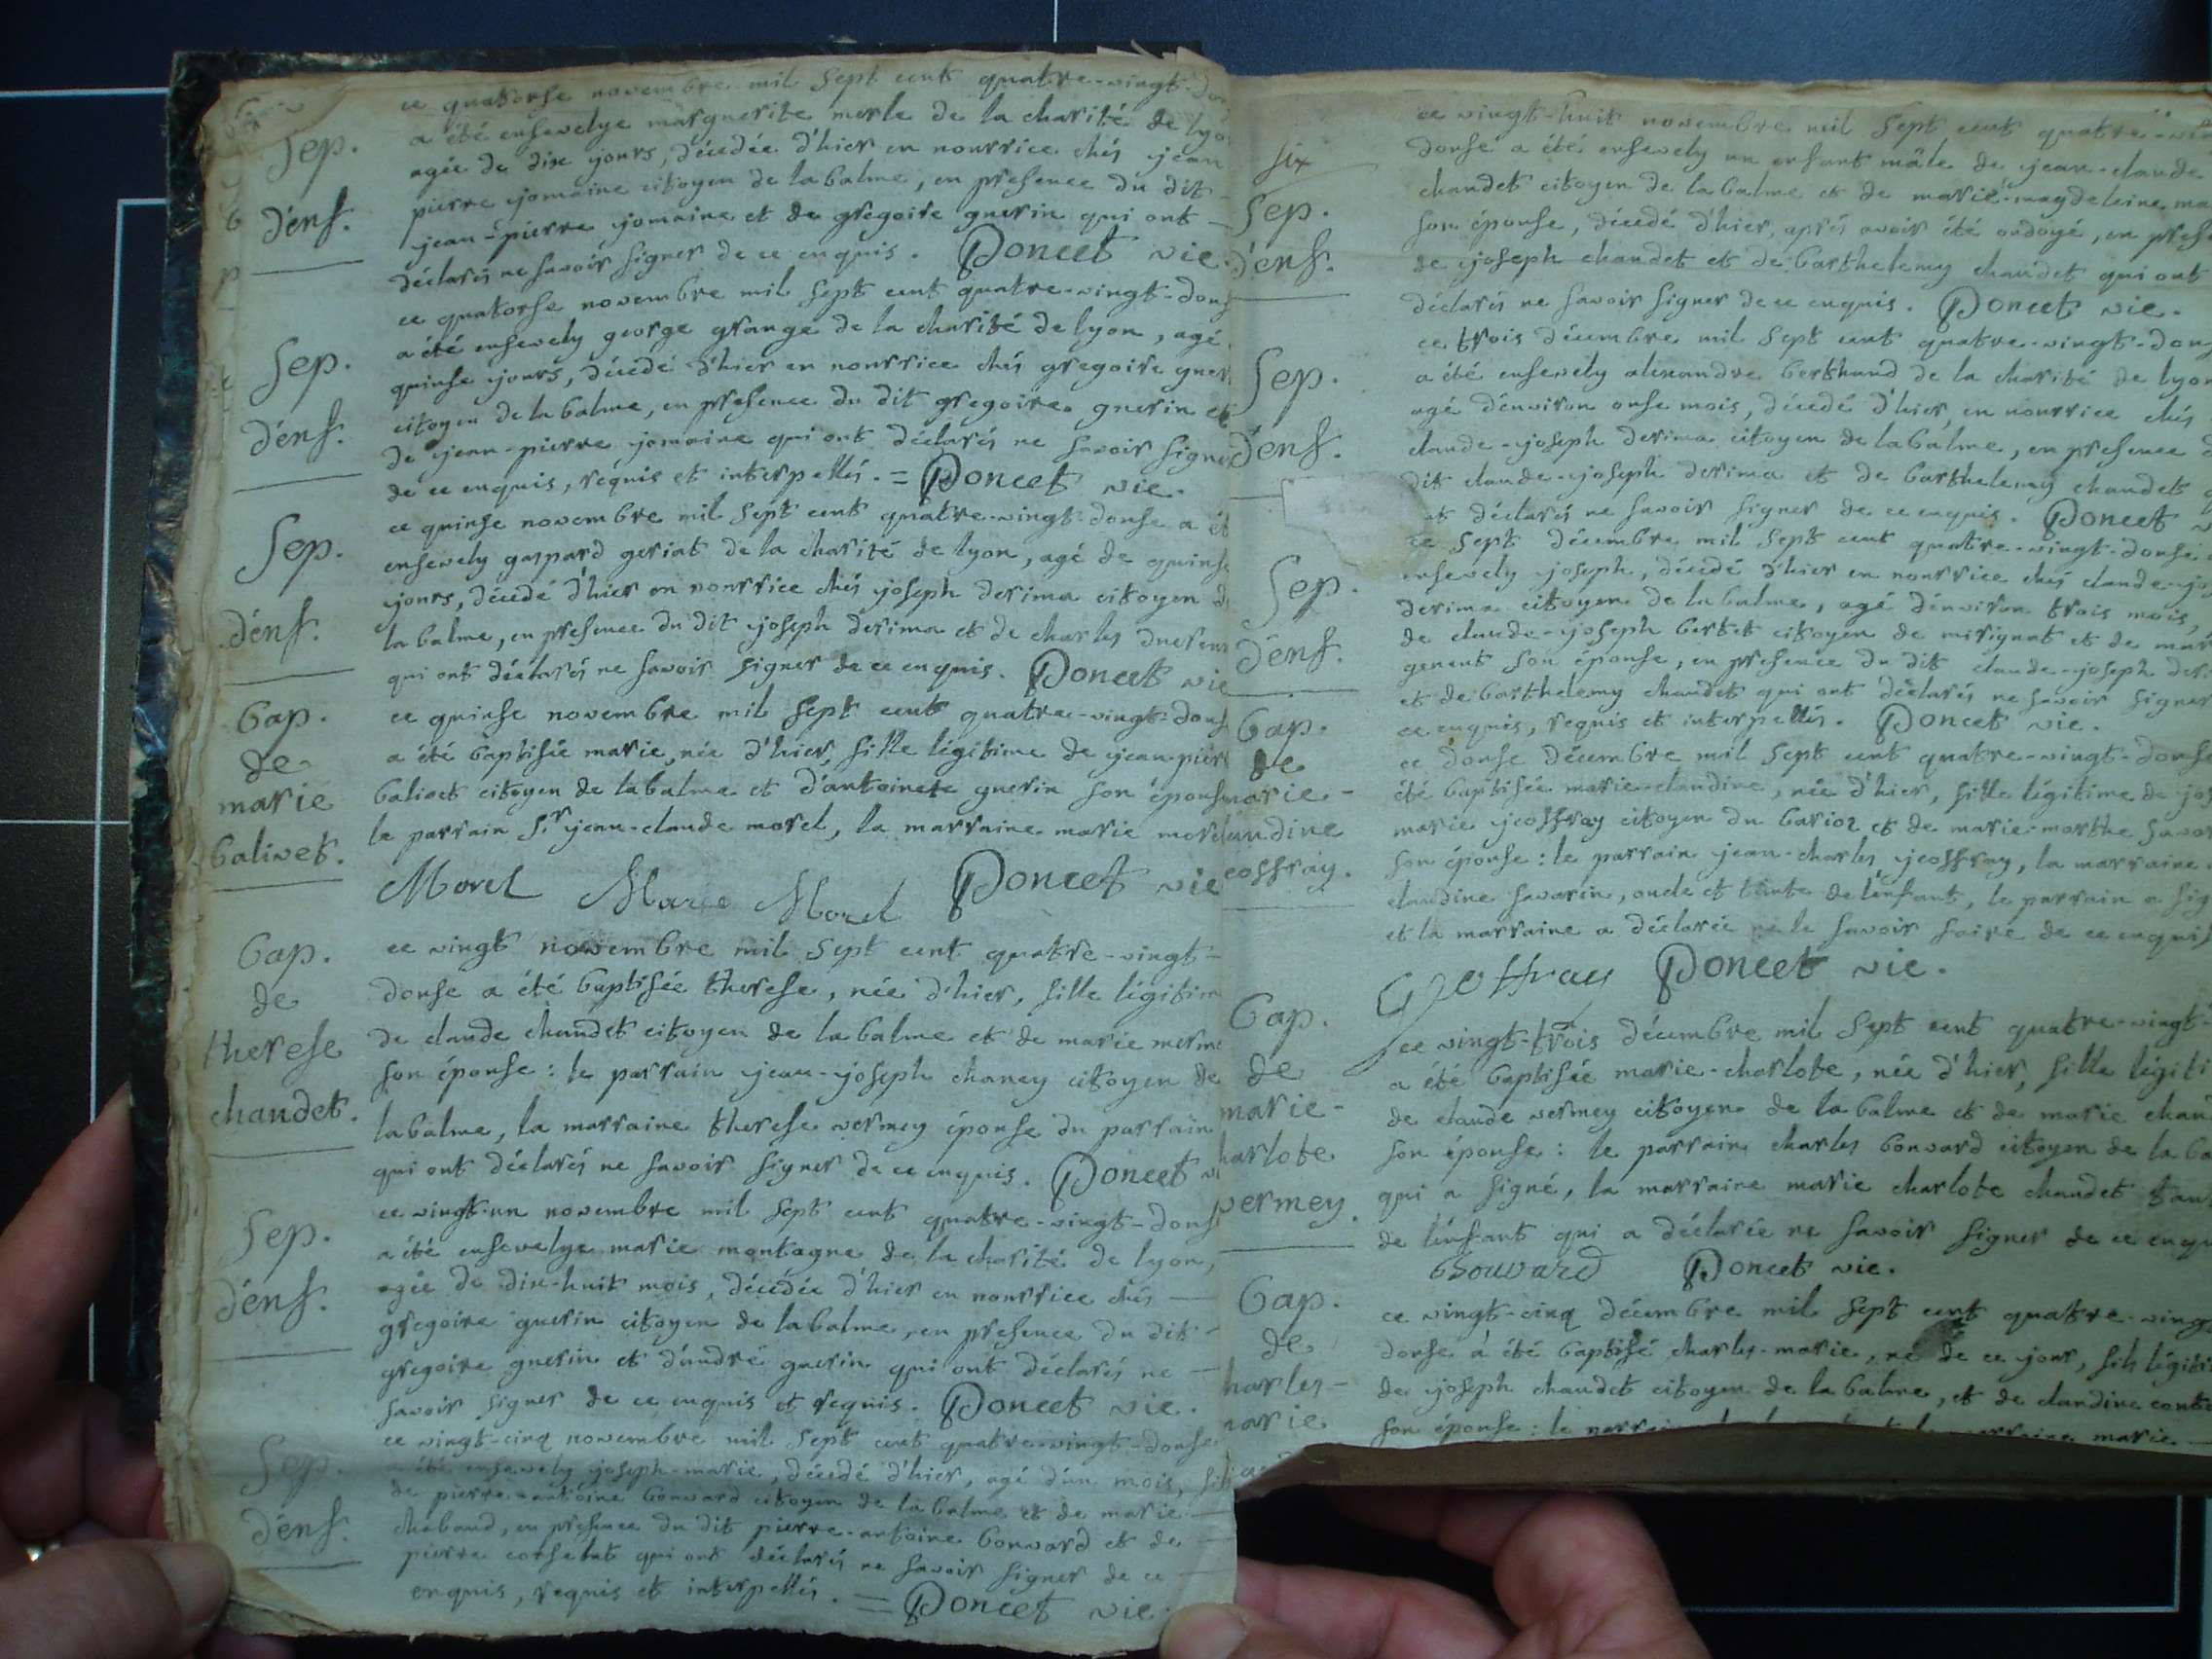 Sep.
d'enf.
ce quatorse novembre mil sept cent quatre-vingt-dou
a été ensevelye marguerite merle de la charité de lyo
agée de dix jours, décédée d'hier en nourrice chés jean
pierre jomaine citoyen de labalme, en presence du dit
jean-pierre jomaine et de gregoire guerin qui ont
déclarés ne savoir signer de ce enquis. Poncet vic.
Sep.
d'enf.
ce quatorse novembre mil sept cent quatre-vingt-dous
a été ensevely george grange de la charité de lyon, agé
quinse jours, décédé d'hier en nourrice chés gregoire guer
citoyen de la balme, en presence du dit gregoire guerin et
de jean-pierre jomaine qui ont déclarés ne savoir signer
de ce enquis, requis et interpellés. = Poncet vic.
Sep.
d'enf.
ce quinse novembre mil sept cent quatre-vingt-douse a ét
ensevely gaspard geriat de la charité de lyon, agé de quinse
jours, décédé d'hier en nourrice chés joseph derima citoyen d
la balme, en presence du dit joseph derima et de charles
qui ont déclarés ne savoir signer de ce enquis. Poncet vic
Bap.
de
marie
balivet.
ce quinse novembre mil sept cent quatre-vingt-dous
a été baptisée marie, née d'hier, fille légitime de jean-pier
balivet citoyen de labalme et d'antoinete guerin son épouse
le parrain sr jean-claude morel, la marraine marie morel
Morel Marie Morel Poncet vic
Bap.
de
therese
chaudet.
ce vingt novembre mil sept cent quatre-vingt-
douse a été baptisée therese, née d'hier, fille légitim
de claude chaudet citoyen de la balme et de marie merme
son épouse : le parrain jean-joseph chaney citoyen de
labalme, la marraine therese vermey épouse du parrain
qui ont déclarés ne savoir signer de ce enquis. Poncet vi
Sep.
d'enf.
ce vingt-un novembre mil sept cent quatre-vingt-dous
a été ensevelye marie montagne de la charité de lyon,
agée de dix-huit mois, décédée d'hier en nourrice chés
gregoire guerin citoyen de labalme, en presence du dit
gregoire guerin et d'andré guerin qui ont déclarés ne
savoir signer de ce enquis et requis. Poncet vic.
Sep.
d'enf.
ce vingt-cinq novembre mil sept cent quatre-vingt-douse
a été ensevely joseph-marie, décédé d'hier, agé d'un mois, fils
de pierre-antoine bonvard citoyen de la balme et de marie
chaband, en presence du dit pierre-antoine bonvard et de
pierre corsetat qui ont déclarés ne savoir signer de ce
enquis, requis et interpellés. = Poncet vic.
six
Sep.
d'enf.
ce vingt-huit novembre mil sept cent quatre-vin
douse a été ensevely un enfant mâle de jean-claude
chaudet citoyen de la balme et de marie-magdeleine ma
son épouse, décédé d'hier, aprés avoir été ondoyé, en prese
de joseph chaudet et de barthelemy chaudet qui ont
déclarés ne savoir signer de ce enquis. Poncet vic.
Sep.
d'enf.
ce trois décembre mil sept cent quatre-vingt-dou
a été ensevely alexandre berthaud de la charité de lyon
agé d'environ onse mois, décédé d'hier, en nourrice chés
claude-joseph derima citoyen de labalme, en presence d
dit claude-joseph derima et de barthelemy chaudet q
nt déclarés ne savoir signer de ce enquis. Poncet v
Sep.
d'enf.
ce sept décembre mil sept cent quatre-vingt-douse
ensevely joseph, décédé d'hier en nourrice chés claude-jo
derima citoyen de labalme, agé d'environ trois mois,
de claude-joseph bertet citoyen de mirignat et de mar
genent son épouse, en presence du dit claude-joseph deri
et de barthelemy chaudet qui ont déclarés ne savoir signer
ce enquis, requis et interpellés. Poncet vic.
Bap.
de
marie-
laudine
eoffray.
ce douse décembre mil sept cent quatre-vingt-douse
été baptisée marie-claudine, née d'hier, fille légitime de jos
marie jeoffray citoyen du barioz et de marie-marthe savar
son épouse : le parrain jean-charles jeoffray, la marraine
claudine savarin, oncle et tante de l'enfant, le parrain a sig
et la marraine a déclarée ne le savoir faire de ce enquis
Jeoffray Poncet vic.
Bap.
de
marie-
harlote
vermey.
ce vingt-trois décembre mil sept cent quatre-vingt-
a été baptisée marie-charlote, née d'hier, fille légiti
de claude vermey citoyen de la balme et de marie chau
son épouse : le parrain charles bonvard citoyen de la ba
qui a signé, la marraine marie charlote chaudet tan
de l'enfant qui a déclarée ne savoir signer de ce enqu
Bouvard Poncet vic.
Bap.
de
harles-
marie
ce vingt-cinq décembre mil sept cent quatre-ving
douse a été baptisé charles-marie, né de ce jour, fils légiti
de joseph chaudet citoyen de la balme, et de claudine conte
son épouse : le parrain marraine marie